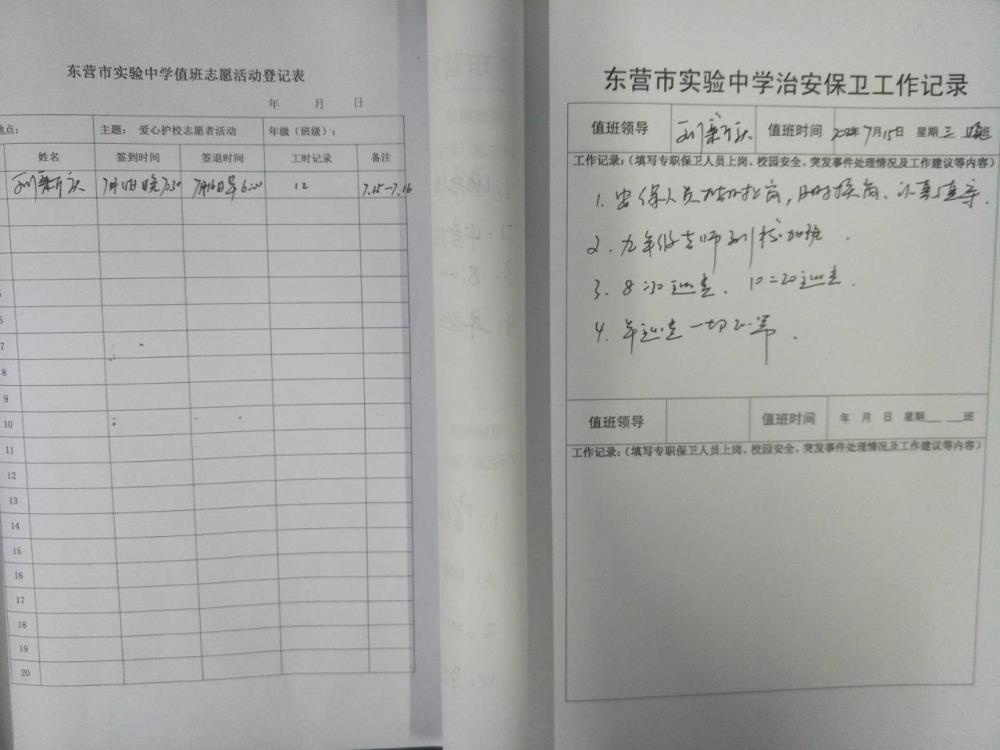 东营市实验中学值班志愿活动登记表
年 月 日
地点： 主题： 爱心护校志愿者活动 年级（班级）：
姓名 签到时间 签退时间 工时记录 备注
刘新庆 7月15日晚7:30 7月16日早6:00 12 7.15-7.16
7
8
9
10
11
12
13
14
15
16
17
18
19
20
东营市实验中学治安保卫工作记录
值班领导 刘新庆 值班时间 7月15日 星期三 晚班
工作记录：（填写专职保卫人员上岗、校园安全、突发事件处理情况及工作建议等内容）
1. 安保人员按时到岗，按时换岗、认真值守.
2. 九年级老师到校加班.
3. 8:30巡查、10:20巡查.
4. 年巡查一切正常.
值班领导 值班时间 年 月 日 星期 班
工作记录：（填写专职保卫人员上岗、校园安全、突发事件处理情况及工作建议等内容）